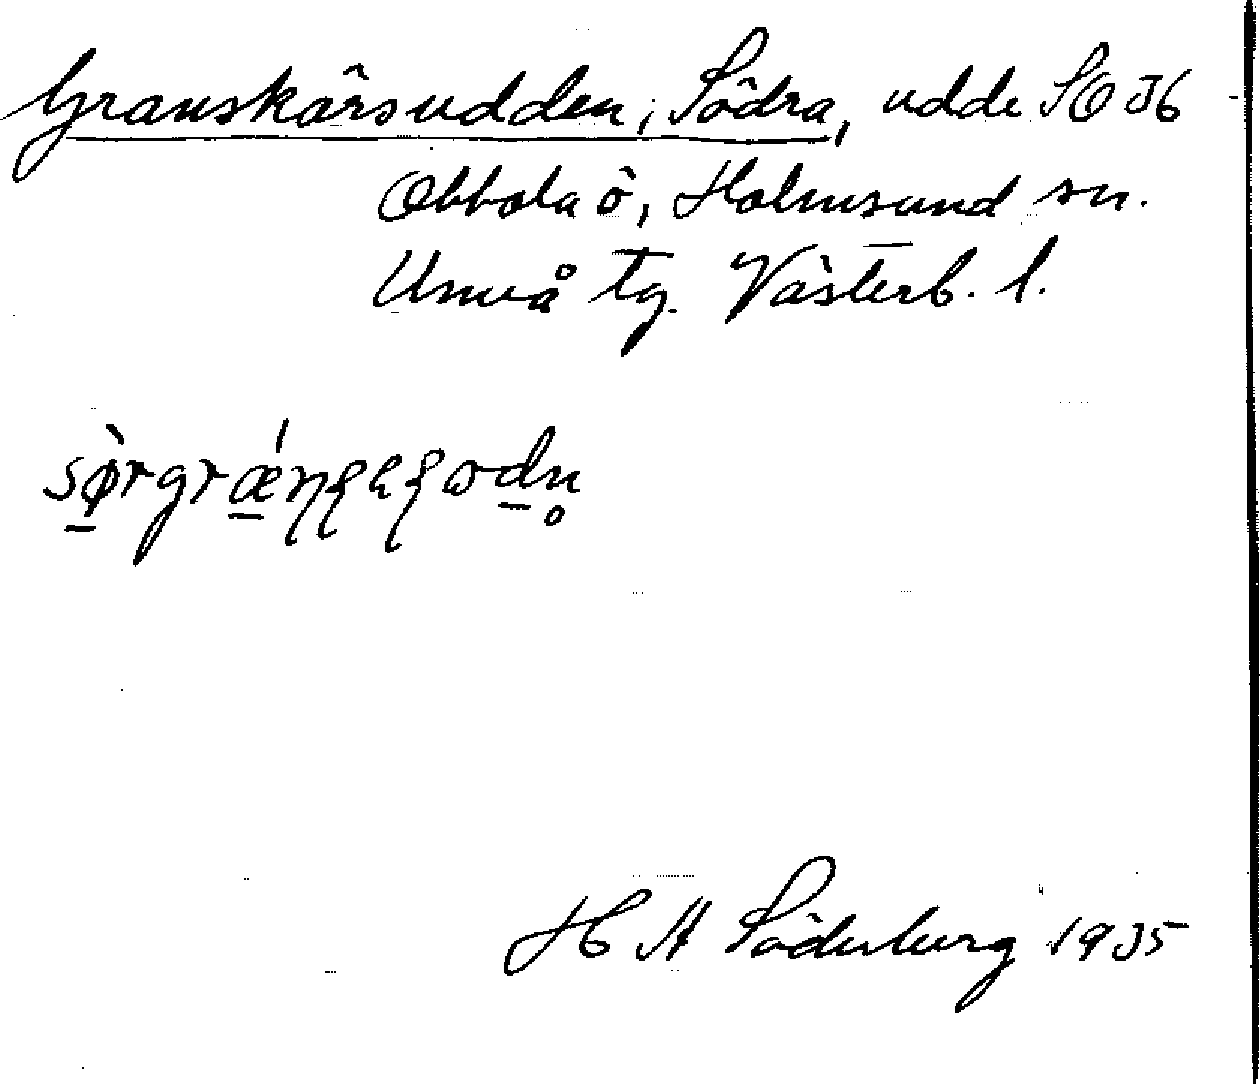 Granskärsudden, Södra, udde SO 36
Obbola ö, Holmsund sn.
Umeå tg. Västerb. l.
H A Söderberg 1935